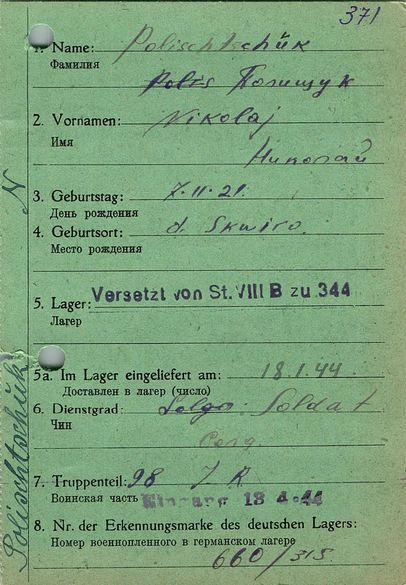 371
1. Name: Polischtschük
Фамилия
Polis Полищук
2. Vornamen: Nikolaj
Имя
Николай
3. Geburtstag: 7.11.21.
День рождения
4. Geburtsort: d. Skwiro.
Место рождения
5. Lager: Versetzt von St. VIII B zu 344
Лагер
5a. Im Lager eingeliefert am: 18.1.44
Доставлен в лагер (число)
6. Dienstgrad: Soldat
Чин
7. Truppenteil: 98 J R
Воинская часть Eingang 18.1.44
8. Nr. der Erkennungsmarke des deutschen Lagers:
Номер военнопленного в германском лагере
660/315
Polischtschük N